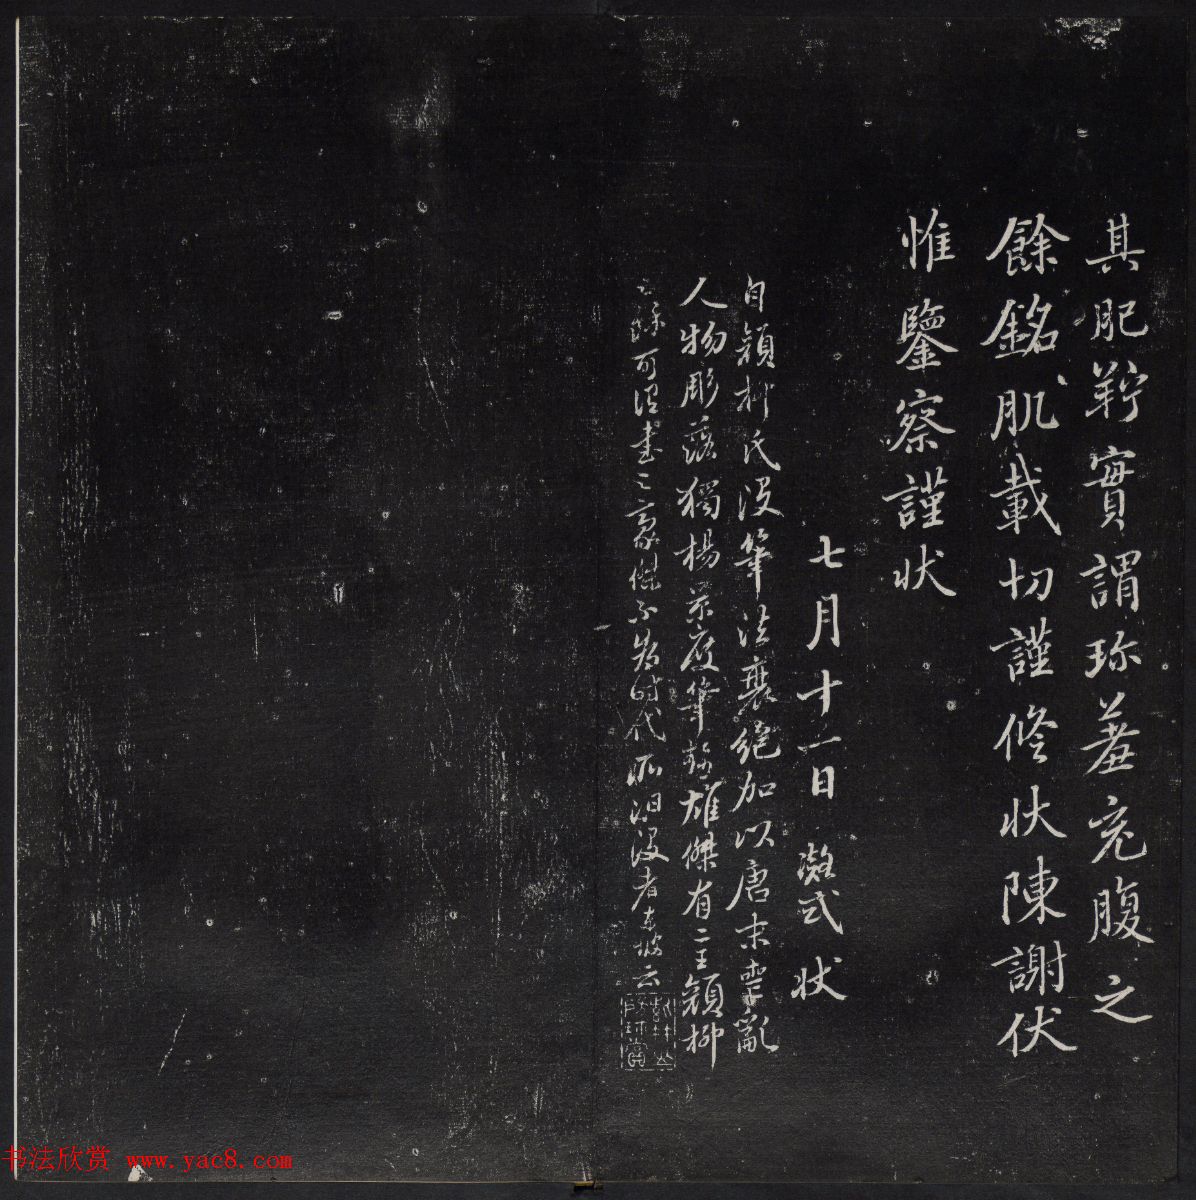 其肥羜實謂珎羞充腹之
餘銘肌載切謹修状陳謝伏
惟鑒察謹状
七月十一日 凝式状
自顔柳氏沒筆法衰絕加以唐末喪亂
人物彫落獨楊景度筆勢雄傑有二王顔柳
之餘可謂書之豪傑不為時代所汩沒者東坡云
书法欣赏 www.yac8.com